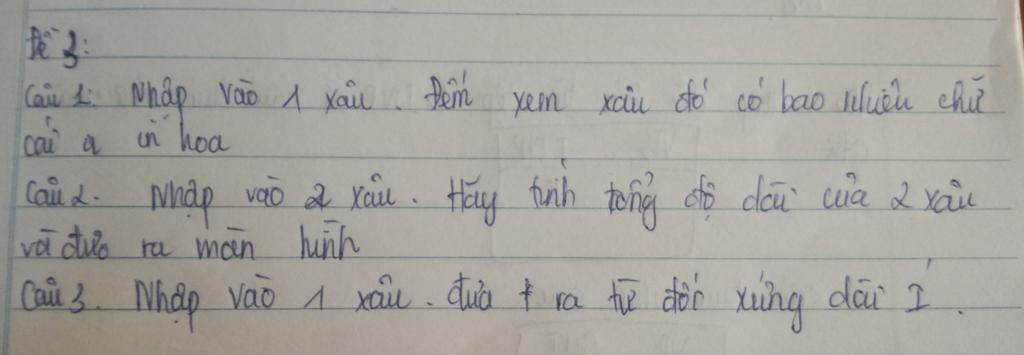 Đề 3:
Câu 1: Nhập vào 1 xâu. Đếm xem xâu đó có bao nhiêu chữ
cái a in hoa
Câu 2. Nhập vào 2 xâu. Hãy tính tổng độ dài của 2 xâu
và đưa ra màn hình
Câu 3. Nhập vào 1 xâu. đưa ra từ đối xứng dài I